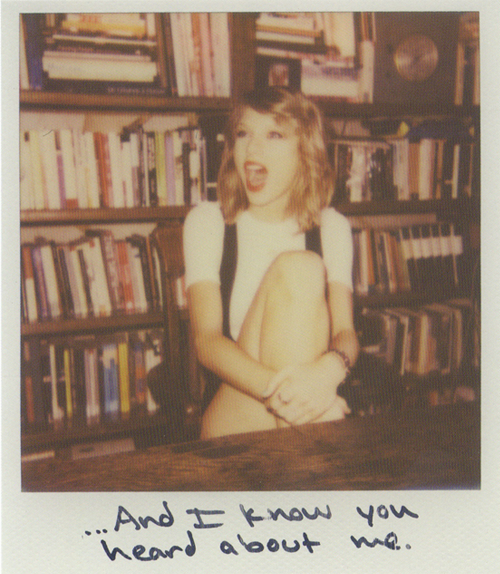 ...And I know you
heard about me.